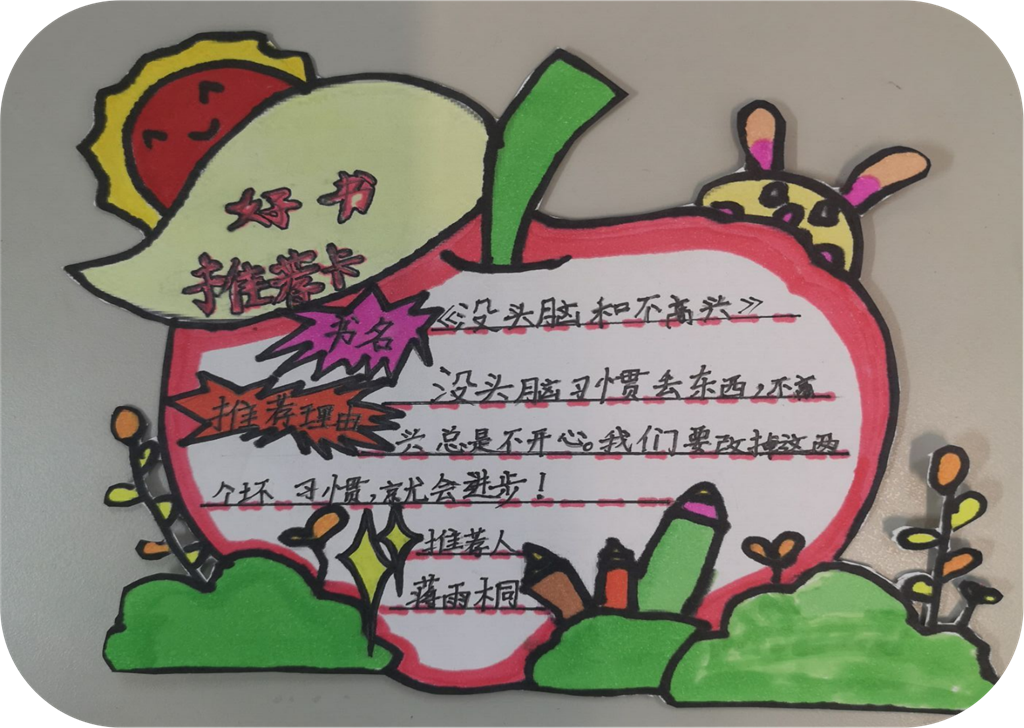 好书
推荐卡
书名
《没头脑和不高兴》
推荐理由
没头脑习惯丢东西,不高
兴总是不开心。我们要改掉这两
个坏习惯,就会进步!
推荐人
蒋雨桐